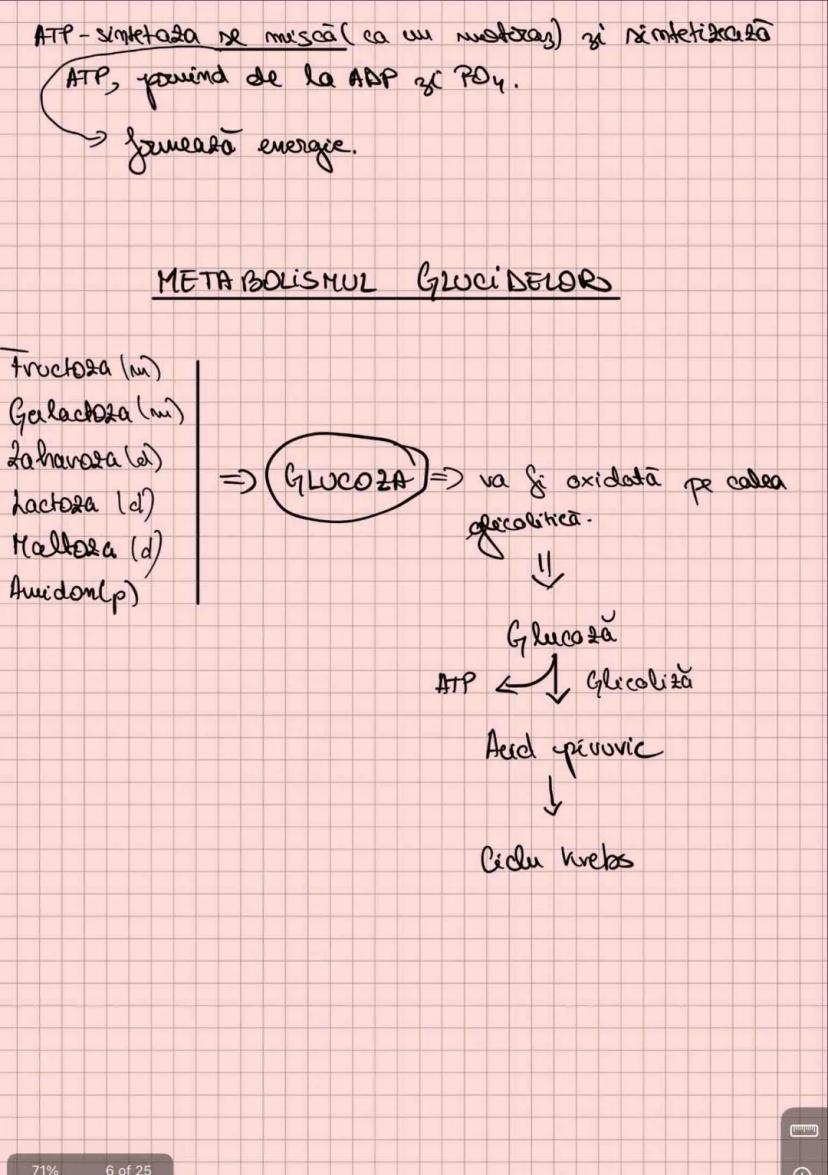 ATP-sintetaza se mişcă (ca un motoraş) şi sintetizează
ATP, pornind de la ADP şi PO4.
=> formează energie.
METABOLISMUL GLUCIDELOR
Fructoza (m)
Galactoza (m)
Zaharoza (d)
Lactoza (d)
Maltoza (d)
Amidon (p)
=> GLUCOZA => va fi oxidată pe calea
glicolitică.
Glucoză
ATP Glicoliză
Acid piruvic
Ciclu Krebs
71% 6 of 25